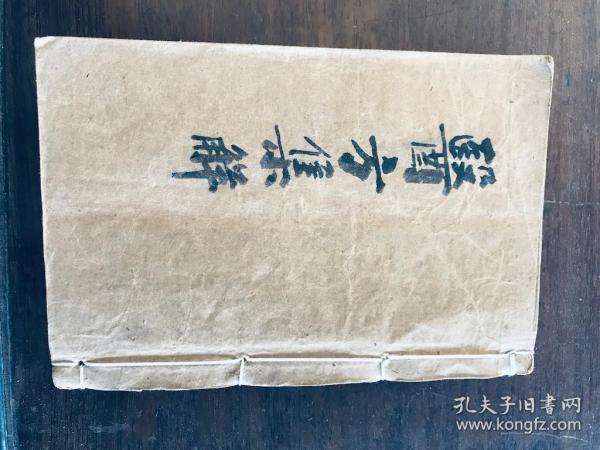 醫方集解
孔夫子旧書网
www.kongfz.com